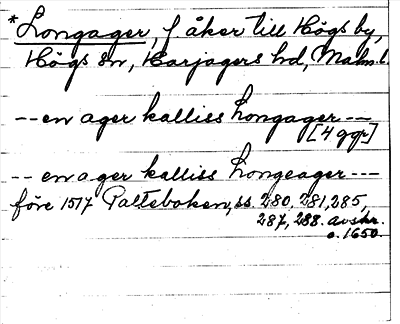 *Longager, f åker till Högs by,
Högs sn, Harjagers hd, Malm. l.
-- en ager kalliss Longager --
[4 ggr]
-- en ager kalliss Longeager ---
före 1517 Palteboken, ss. 280, 281, 285,
287, 288. avskr.
o. 1650.